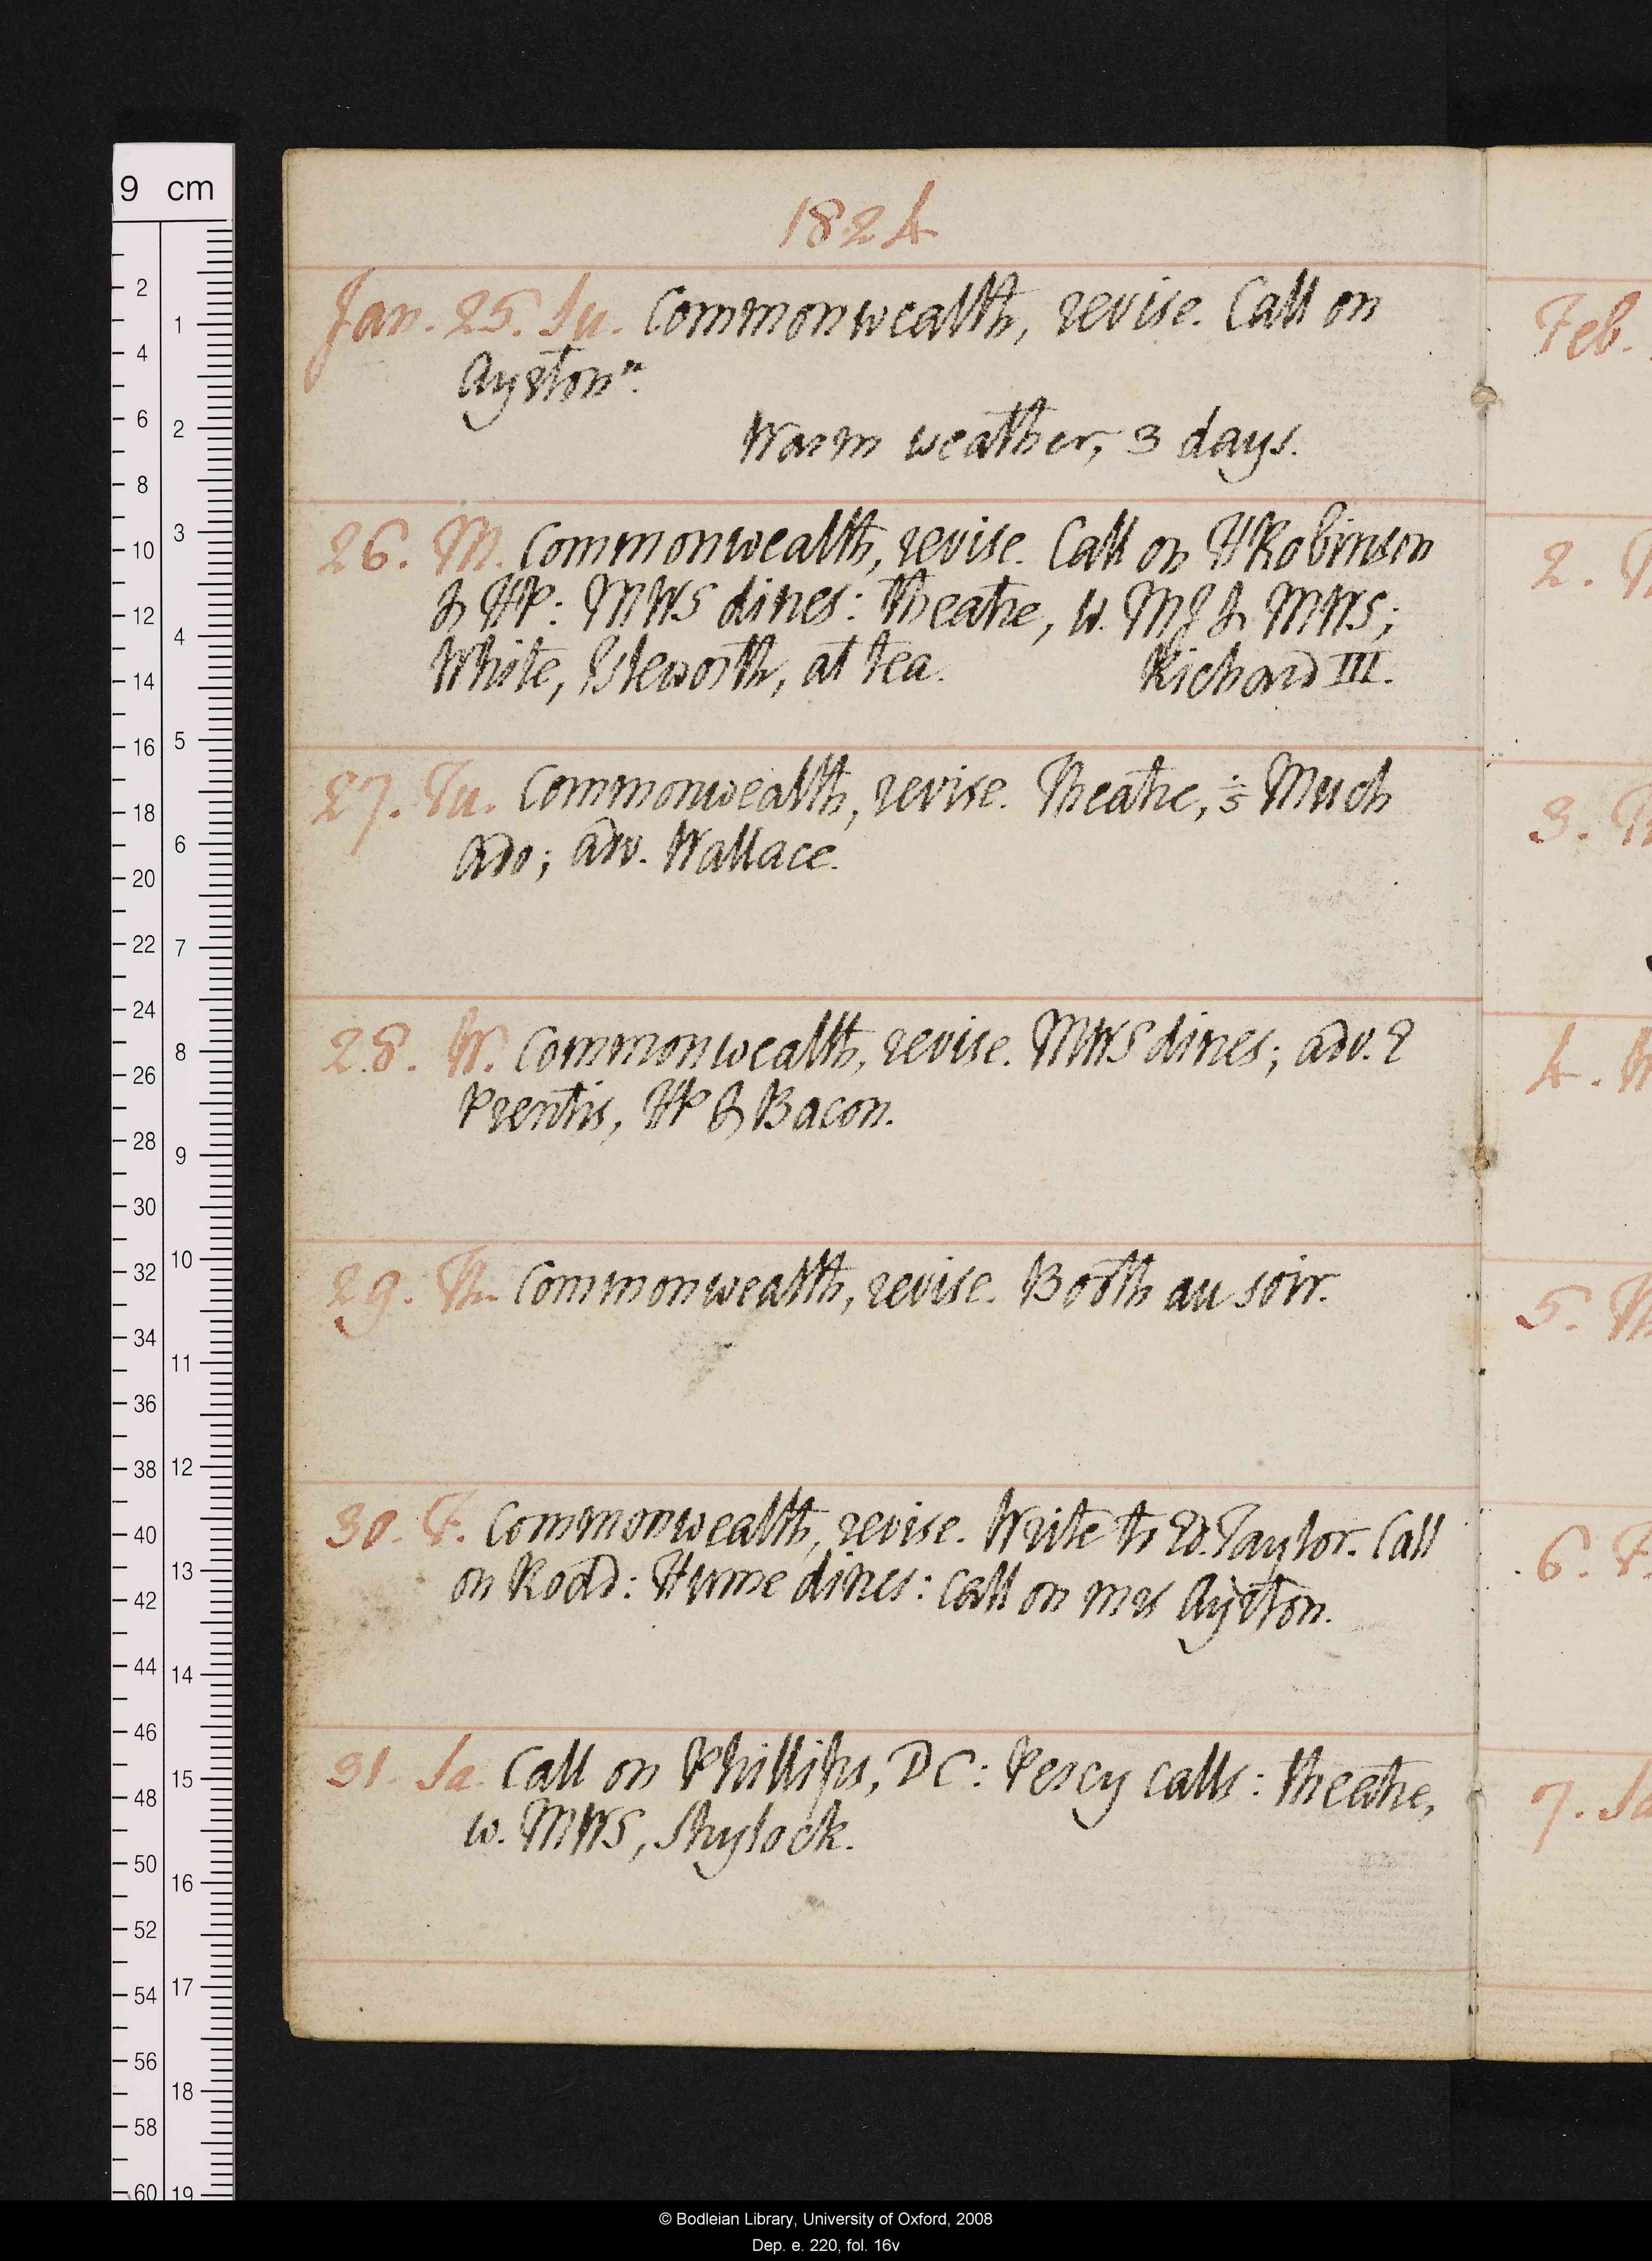 9 cm
1824
Jan. 25. Su. Commonwealth, revise. Call on
Ayrton n.
Warm weather, 3 days.
26. M. Commonwealth, revise. Call on HRobinson
& HP: MWS dines: Theatre, w. MJ & MWS;
White, Isleworth, at tea. Richard III.
27. Tu. Commonwealth, revise. Theatre, Much
Ado; adv. Wallace.
28. W. Commonwealth, revise. MWS dines; adv.
Prentis, HP & Bacon.
29. Th. Commonwealth, revise. Booth au soir.
30. F. Commonwealth, revise. Write to Ed. Taylor. Call
on Rodd: Hume dines: call on mrs Ayrton.
31. Sa. Call on Phillips, DC: Percy calls: Theatre,
w. MWS, Shylock.
Feb.
2.
3.
4. W
5. Th
6. F.
7. Sa
© Bodleian Library, University of Oxford, 2008
Dep. e. 220, fol. 16v